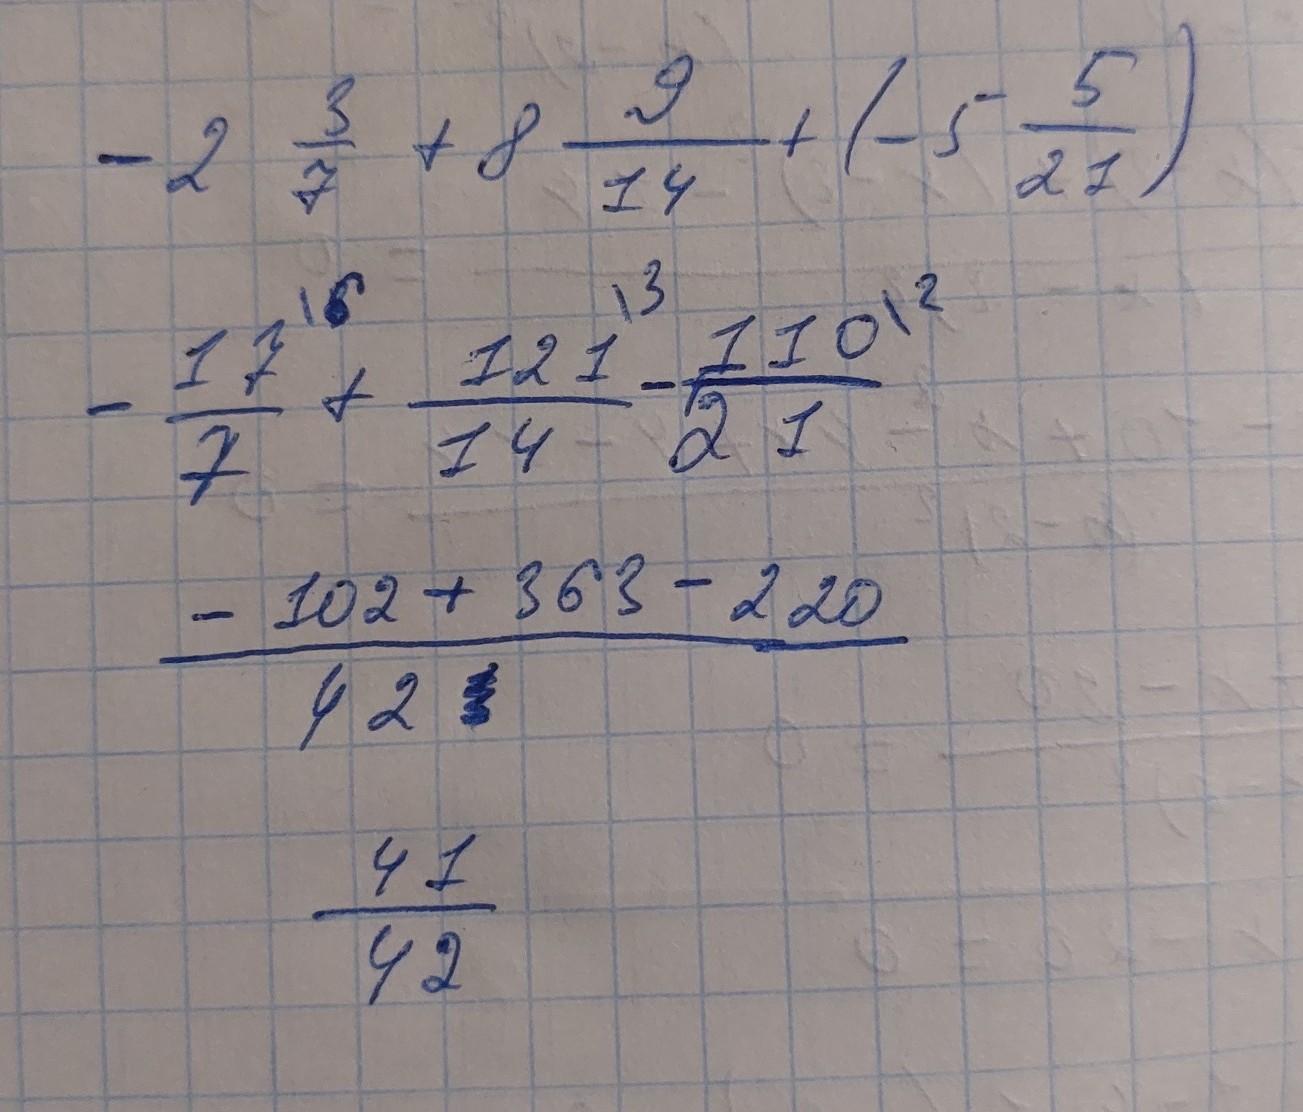 -2 3/7 + 8 9/14 + (-5 5/21)
- 17\6/7 + 121\3/14 - 110\2/21
- 102 + 363 - 220
42
41
42